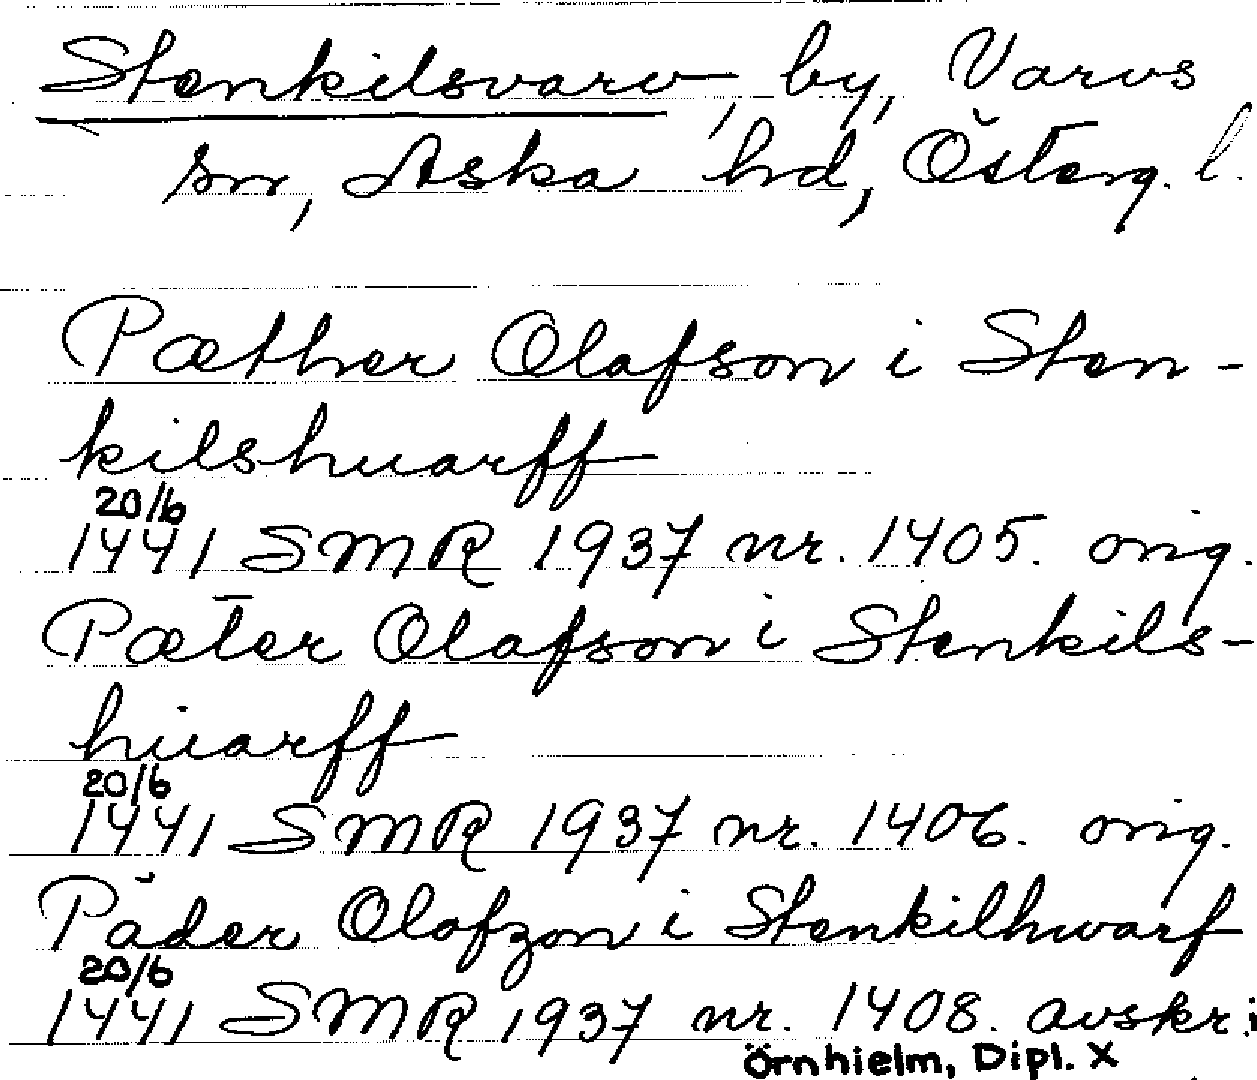 Stenkilsvarv, by, Varvs
sn, Aska hd, Österg. l.
Pæther Olafson i Sten-
kilshuarff
20/6
1441 SMR 1937 nr. 1405. orig.
Pæter Olafson i Stenkils-
huarff
20/6
1441 SMR 1937 nr. 1406. orig.
Päder Olafzon i Stenkilhwarf
20/6
1441 SMR 1937 nr. 1408. avskr. i
Örnhielm, Dipl. X